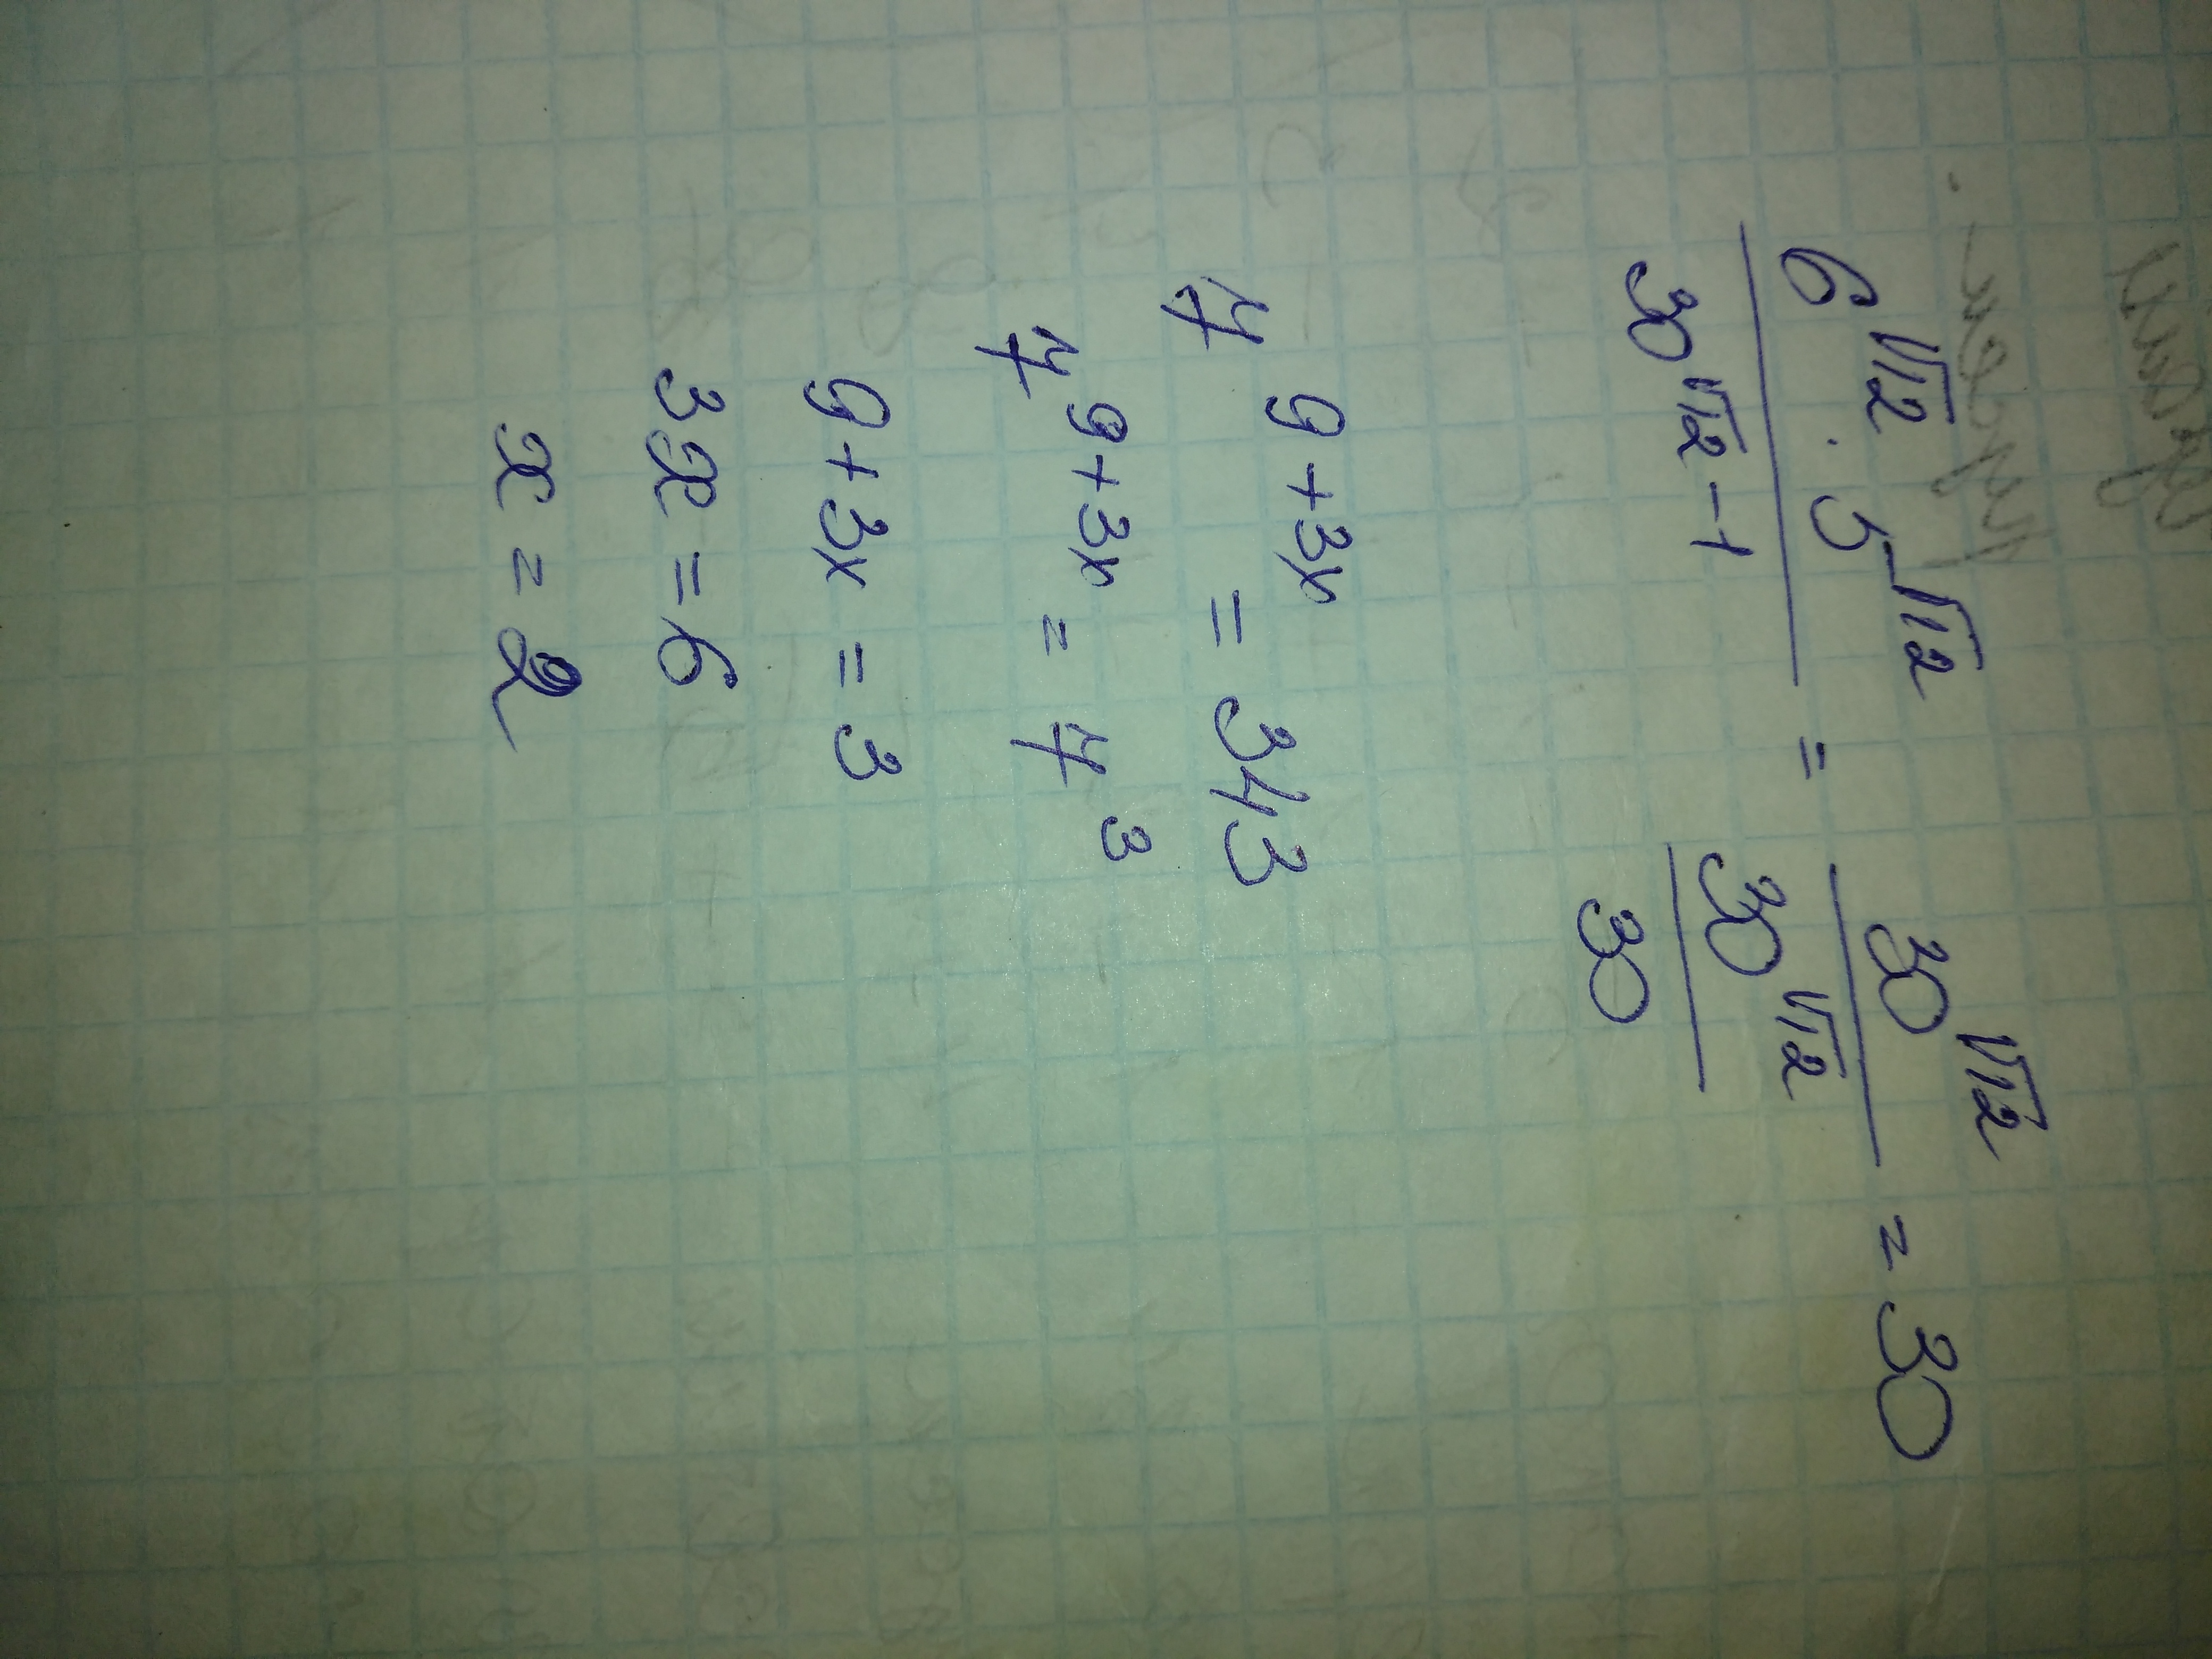 6^√12 · 5^√12 / 30^(√12 - 1) = 30^√12 / (30^√12 / 30) = 30
7^(9 + 3x) = 343
7^(9 + 3x) = 7^3
9 + 3x = 3
3x = 6
x = 2